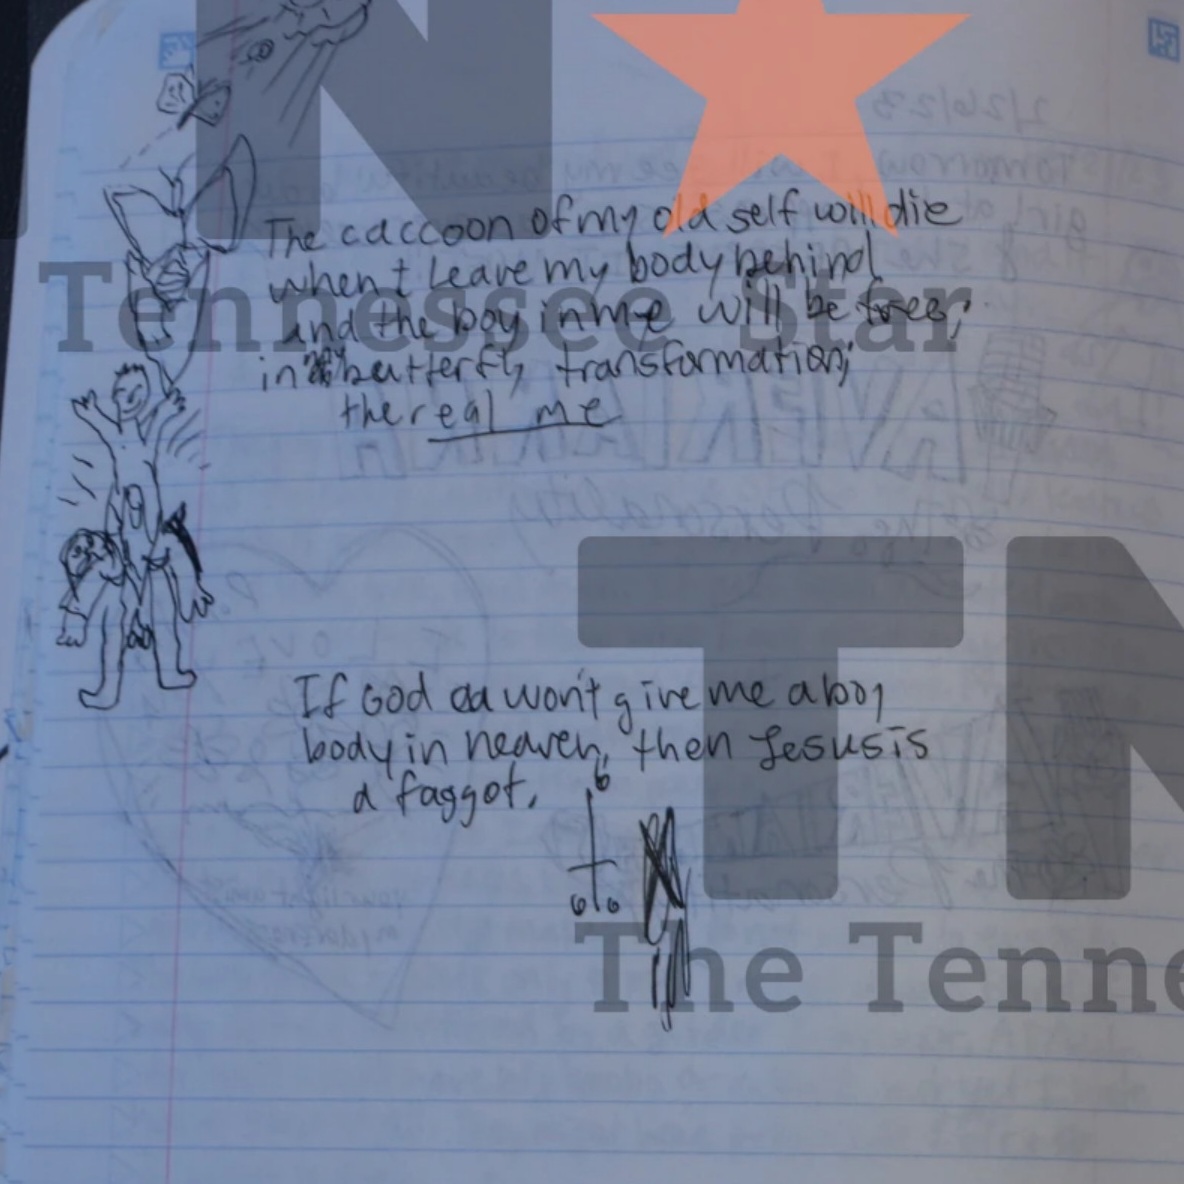 N
The caccoon of my old self will die
when I leave my body behind
and the boy in me will be free;
in butterfly transformation;
the real me
Tennessee Star
If God won't give me a boy
body in heaven, then Jesus is
a faggot.
6
6 6
TN
The Tenne